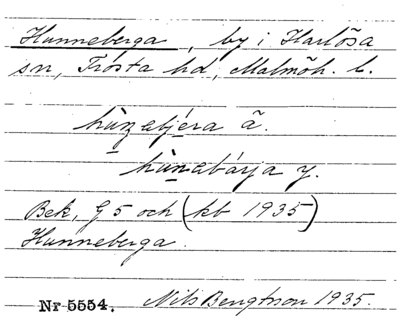 Hunneberga, by i Harlösa
sn, Frosta hd, Malmöh. l.
hùnabjera ä.
hùnabárja y.
Bek, G 5 och (kb 1935)
Hunneberga.
Nr 5554. Nils Bengtson 1935.